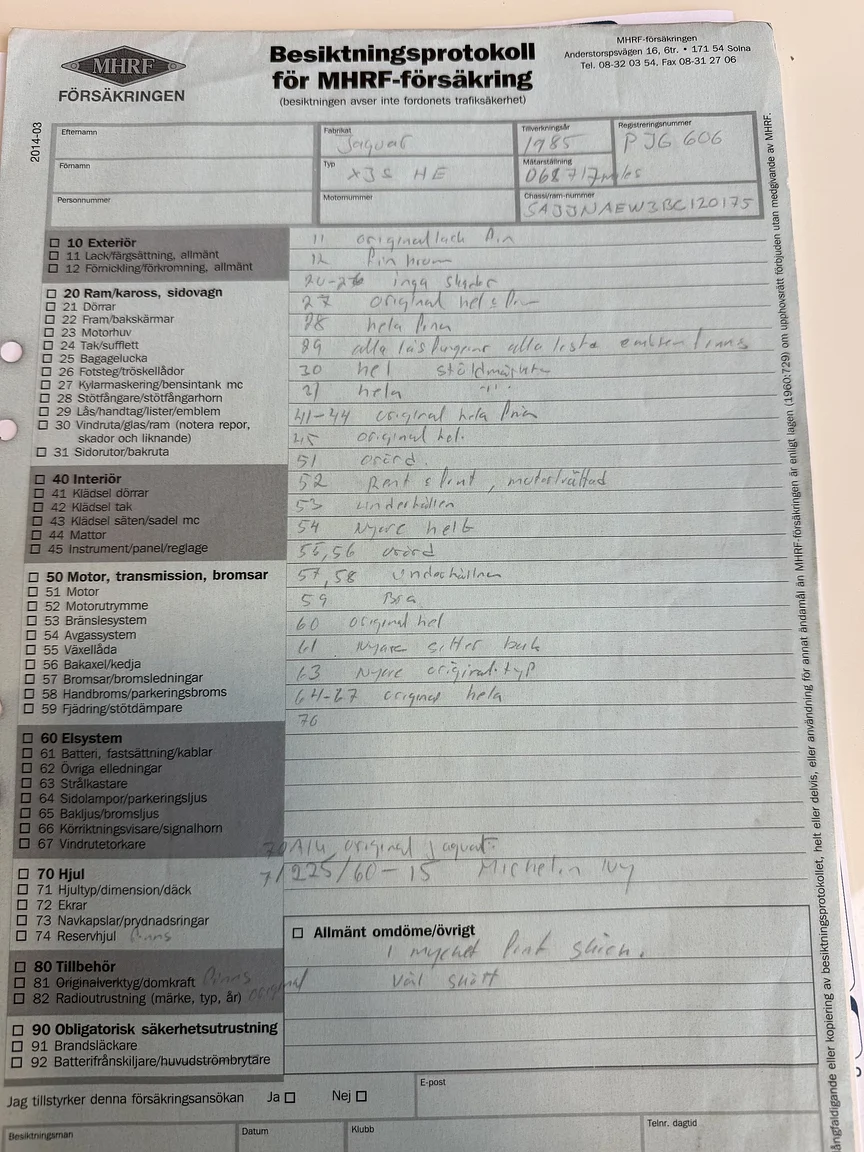 MHRF
FÖRSÄKRINGEN
Besiktningsprotokoll
för MHRF-försäkring
(besiktningen avser inte fordonets trafiksäkerhet)
MHRF-försäkringen
Anderstorpsvägen 16, 6tr. • 171 54 Solna
Tel. 08-32 03 54. Fax 08-31 27 06
2014-03
Efternamn
Förnamn
Personnummer
Fabrikat
Jaguar
Typ
XJS HE
Motornummer
Tillverkningsår
1985
Mätarställning
068717 miles
Registreringsnummer
PJG 606
Chassi/ram-nummer
SAJJNAEW3BC120175
10 Exteriör
11 Lack/färgsättning, allmänt
12 Förnickling/förkromning, allmänt
20 Ram/kaross, sidovagn
21 Dörrar
22 Fram/bakskärmar
23 Motorhuv
24 Tak/sufflett
25 Bagagelucka
26 Fotsteg/tröskellådor
27 Kylarmaskering/bensintank mc
28 Stötfångare/stötfångarhorn
29 Lås/handtag/lister/emblem
30 Vindruta/glas/ram (notera repor,
skador och liknande)
31 Sidorutor/bakruta
40 Interiör
41 Klädsel dörrar
42 Klädsel tak
43 Klädsel säten/sadel mc
44 Mattor
45 Instrument/panel/reglage
50 Motor, transmission, bromsar
51 Motor
52 Motorutrymme
53 Bränslesystem
54 Avgassystem
55 Växellåda
56 Bakaxel/kedja
57 Bromsar/bromsledningar
58 Handbroms/parkeringsbroms
59 Fjädring/stötdämpare
60 Elsystem
61 Batteri, fastsättning/kablar
62 Övriga elledningar
63 Strålkastare
64 Sidolampor/parkeringsljus
65 Bakljus/bromsljus
66 Körriktningsvisare/signalhorn
67 Vindrutetorkare
70 Hjul
71 Hjultyp/dimension/däck
72 Ekrar
73 Navkapslar/prydnadsringar
74 Reservhjul finns
80 Tillbehör
81 Originalverktyg/domkraft finns
82 Radioutrustning (märke, typ, år) original
90 Obligatorisk säkerhetsutrustning
91 Brandsläckare
92 Batterifrånskiljare/huvudströmbrytare
11 original lack fin
12 fin krom
20-26 inga skador
27 original hel o fin
28 hela fina
29 alla lås fungerar alla lister emblem finns
30 hel stöldmärkt
31 hela -"-
41-44 original hela fina
45 original hel.
51 orörd.
52 Rent o fint, motortvättad
53 underhållen
54 Nyare helt
55,56 orörd
57,58 underhållna
59 Bra
60 original hel
61 Nyare sitter bak
63 Nyare original typ
64-67 original hela
70
70 Alu original jaguar.
71 225/60-15 Michelin Ny
Allmänt omdöme/övrigt
I mycket fint skick.
Väl skött
Jag tillstyrker denna försäkringsansökan
Ja
Nej
E-post
Besiktningsman
Datum
Klubb
Telnr. dagtid
ångfaldigande eller kopiering av besiktningsprotokollet, helt eller delvis, eller användning för annat ändamål än MHRF-försäkringen är enligt lagen (1960:729) om upphovsrätt förbjuden utan medgivande av MHRF.